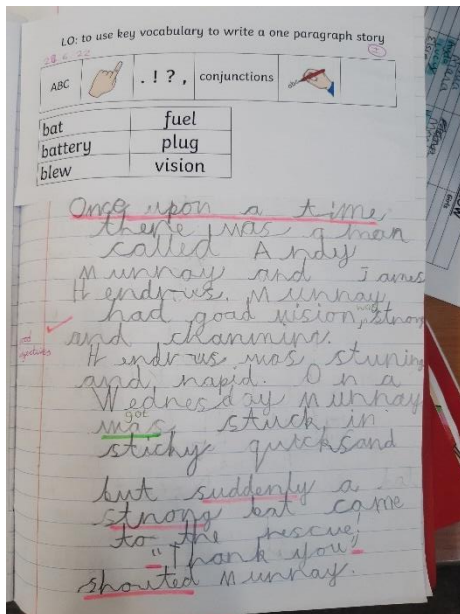 LO: to use key vocabulary to write a one paragraph story
ABC
. ! ? ,
conjunctions
abc
bat fuel
battery plug
blew vision
Once upon a time
there was a man
called Andy
Murray and James
Hendrus. Murray
had good vision, was strong
and charming.
Hendrus was stuning
and rapid. On a
Wednesday Murray
got
was stuck in
sticky quicksand
but suddenly a
strong bat came
to the rescue!
"Thank you"
shouted Murray.